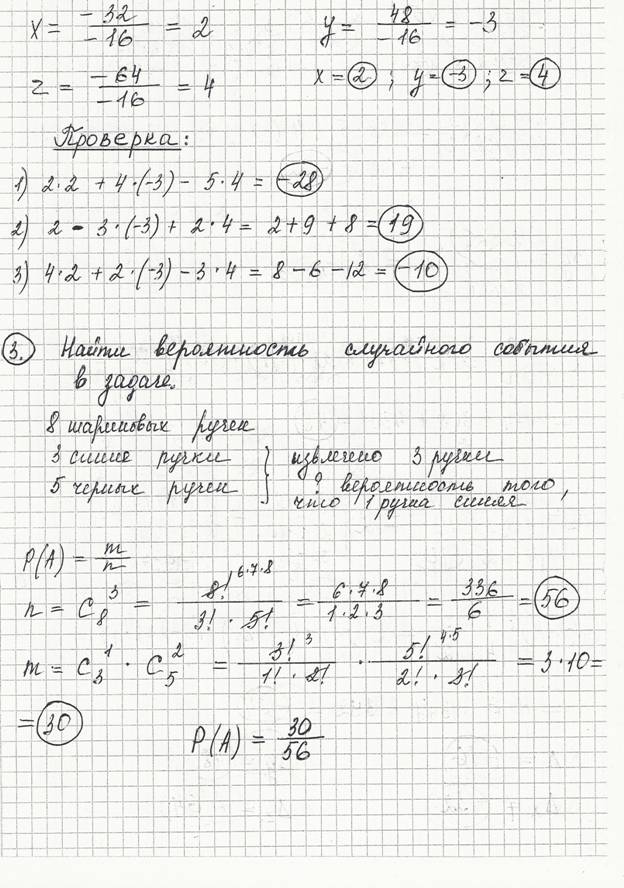 x = -32/-16 = 2    y = 48/-16 = -3
z = -64/-16 = 4    x = 2 ; y = -3 ; z = 4
Проверка:
1) 2·2 + 4·(-3) - 5·4 = -28
2) 2 - 3·(-3) + 2·4 = 2+9+8 = 19
3) 4·2 + 2·(-3) - 3·4 = 8-6-12 = -10
3. Найти вероятность случайного события
в задаче.
8 шариковых ручек
3 синие ручки } извлечено 3 ручки
5 черных ручек } ? вероятность того,
что 1 ручка синяя
P(A) = m/n
n = C₈³ = 8! 6·7·8 / 3! · 5! = 6·7·8 / 1·2·3 = 336/6 = 56
m = C₃¹ · C₅² = 3! 3 / 1! · 2! · 5! 4·5 / 2! · 3! = 3·10=
= 30    P(A) = 30/56